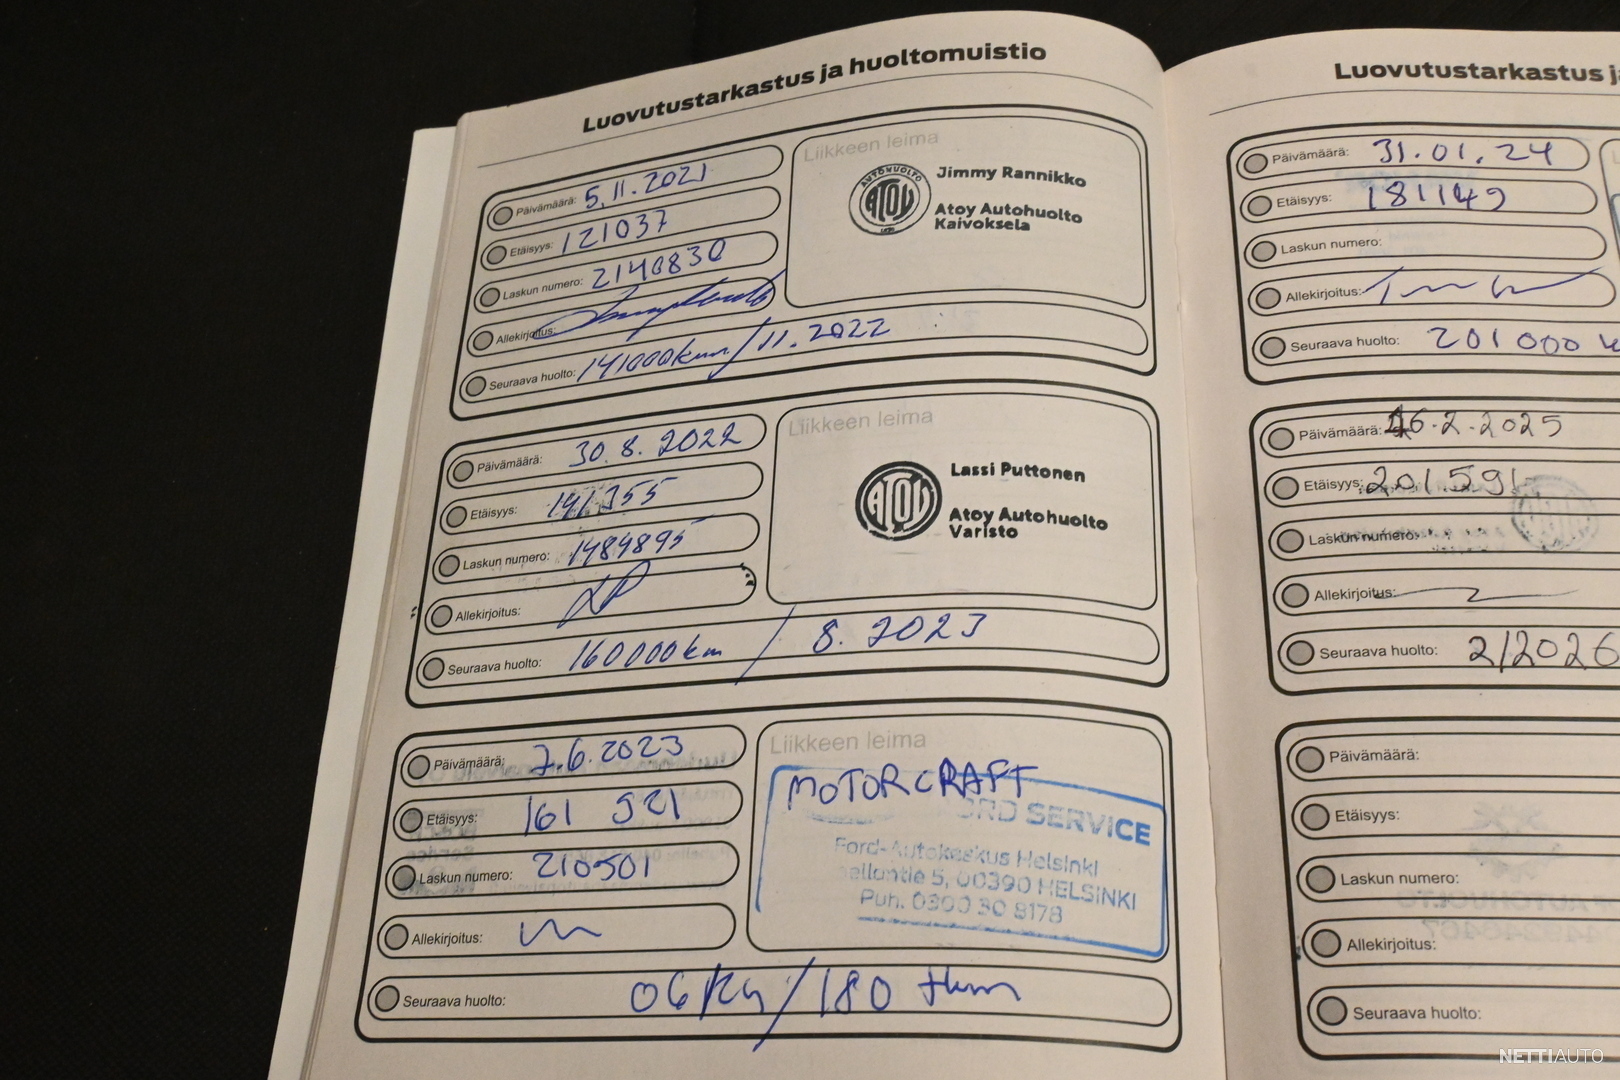 Luovutustarkastus ja huoltomuistio
Päivämäärä: 5.11.2021
Etäisyys: 121037
Laskun numero: 2140830
Allekirjoitus:
Seuraava huolto: 141000km/11.2022
Liikkeen leima
AUTOHUOLTO
ATOY
Jimmy Rannikko
Atoy Autohuolto
Kaivoksela
Päivämäärä: 30.8.2022
Etäisyys: 141355
Laskun numero: 1484895
Allekirjoitus:
Seuraava huolto: 160000km / 8.2023
Liikkeen leima
ATOY
Lassi Puttonen
Atoy Autohuolto
Varisto
Päivämäärä: 7.6.2023
Etäisyys: 161 921
Laskun numero: 210501
Allekirjoitus:
Seuraava huolto: / 180 tkm
Liikkeen leima
MOTORCRAFT
SERVICE
Ford-Autokeskus Helsinki
5, 00390 HELSINKI
Puh. 0300 30 8178
Luovutustarkastus
Päivämäärä: 31.01.24
Etäisyys: 181149
Laskun numero:
Allekirjoitus:
Seuraava huolto: 201000
Päivämäärä: 26.2.2025
Etäisyys: 201591
Laskun numero:
Allekirjoitus:
Seuraava huolto: 2/2026
Päivämäärä:
Etäisyys:
Laskun numero:
Allekirjoitus:
Seuraava huolto:
NETTIAUTO